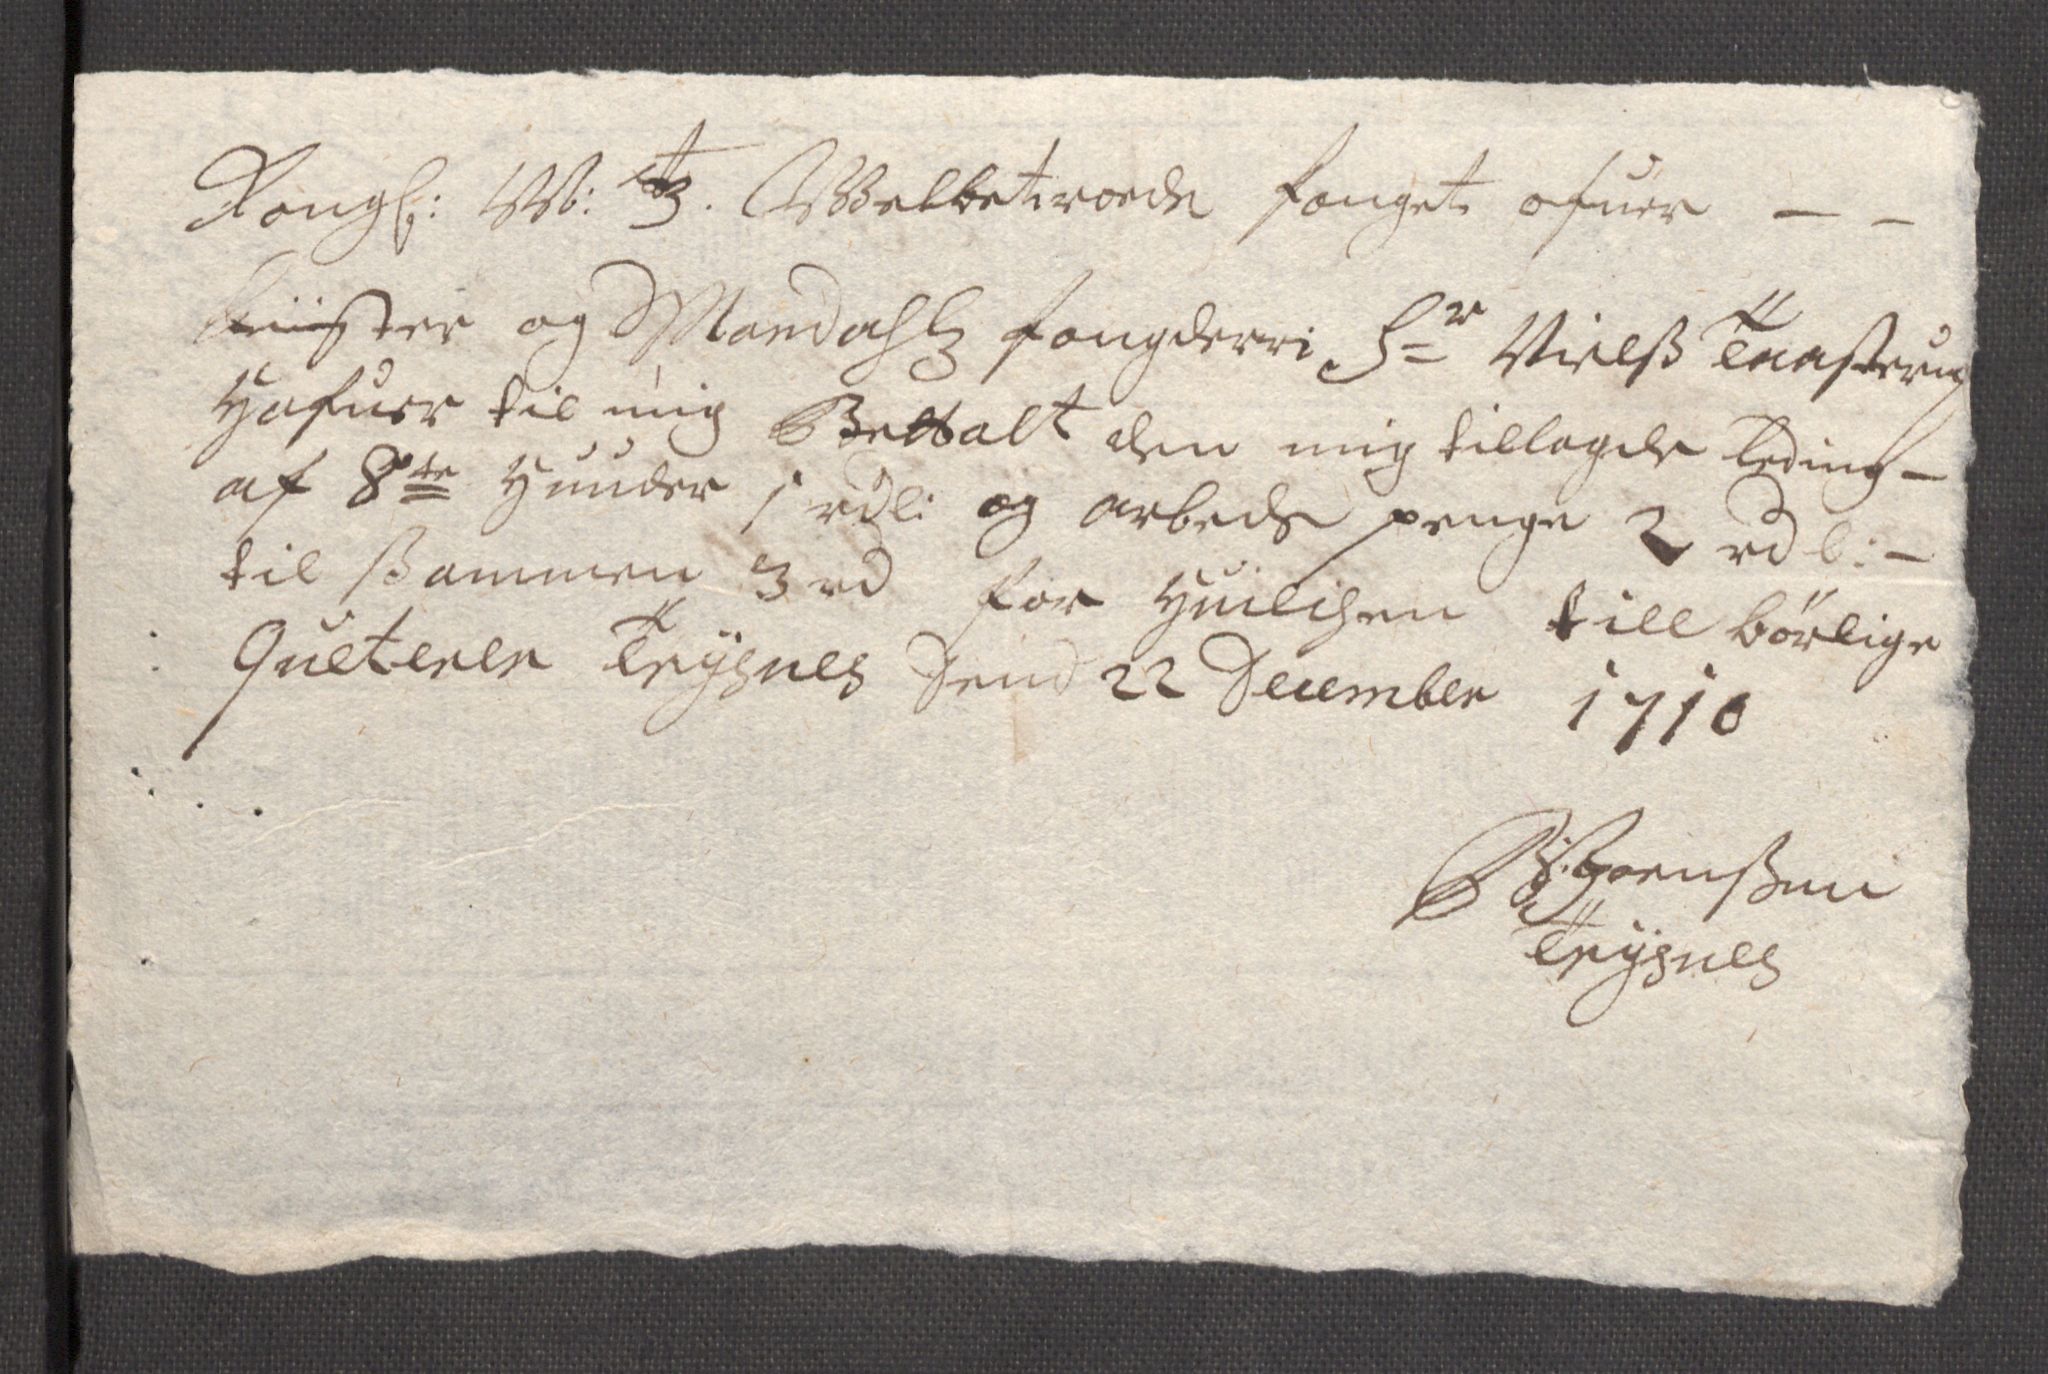 Kongl: M: tz. Welbetroede fouget ofuer - -
Liister og Mandahlz fougderri Sr Nielß Taasterup
Hafuer til mig Bettalt den mig tillagde leding -
af 8te Huuder 1 rdl: og arbeds penge 2 rdl: -
til ßammen 3 rd for Huilchen till børlige
Quiterer Treÿsnes Dend 22 December 1710
B: Joenßen
Treÿsnes